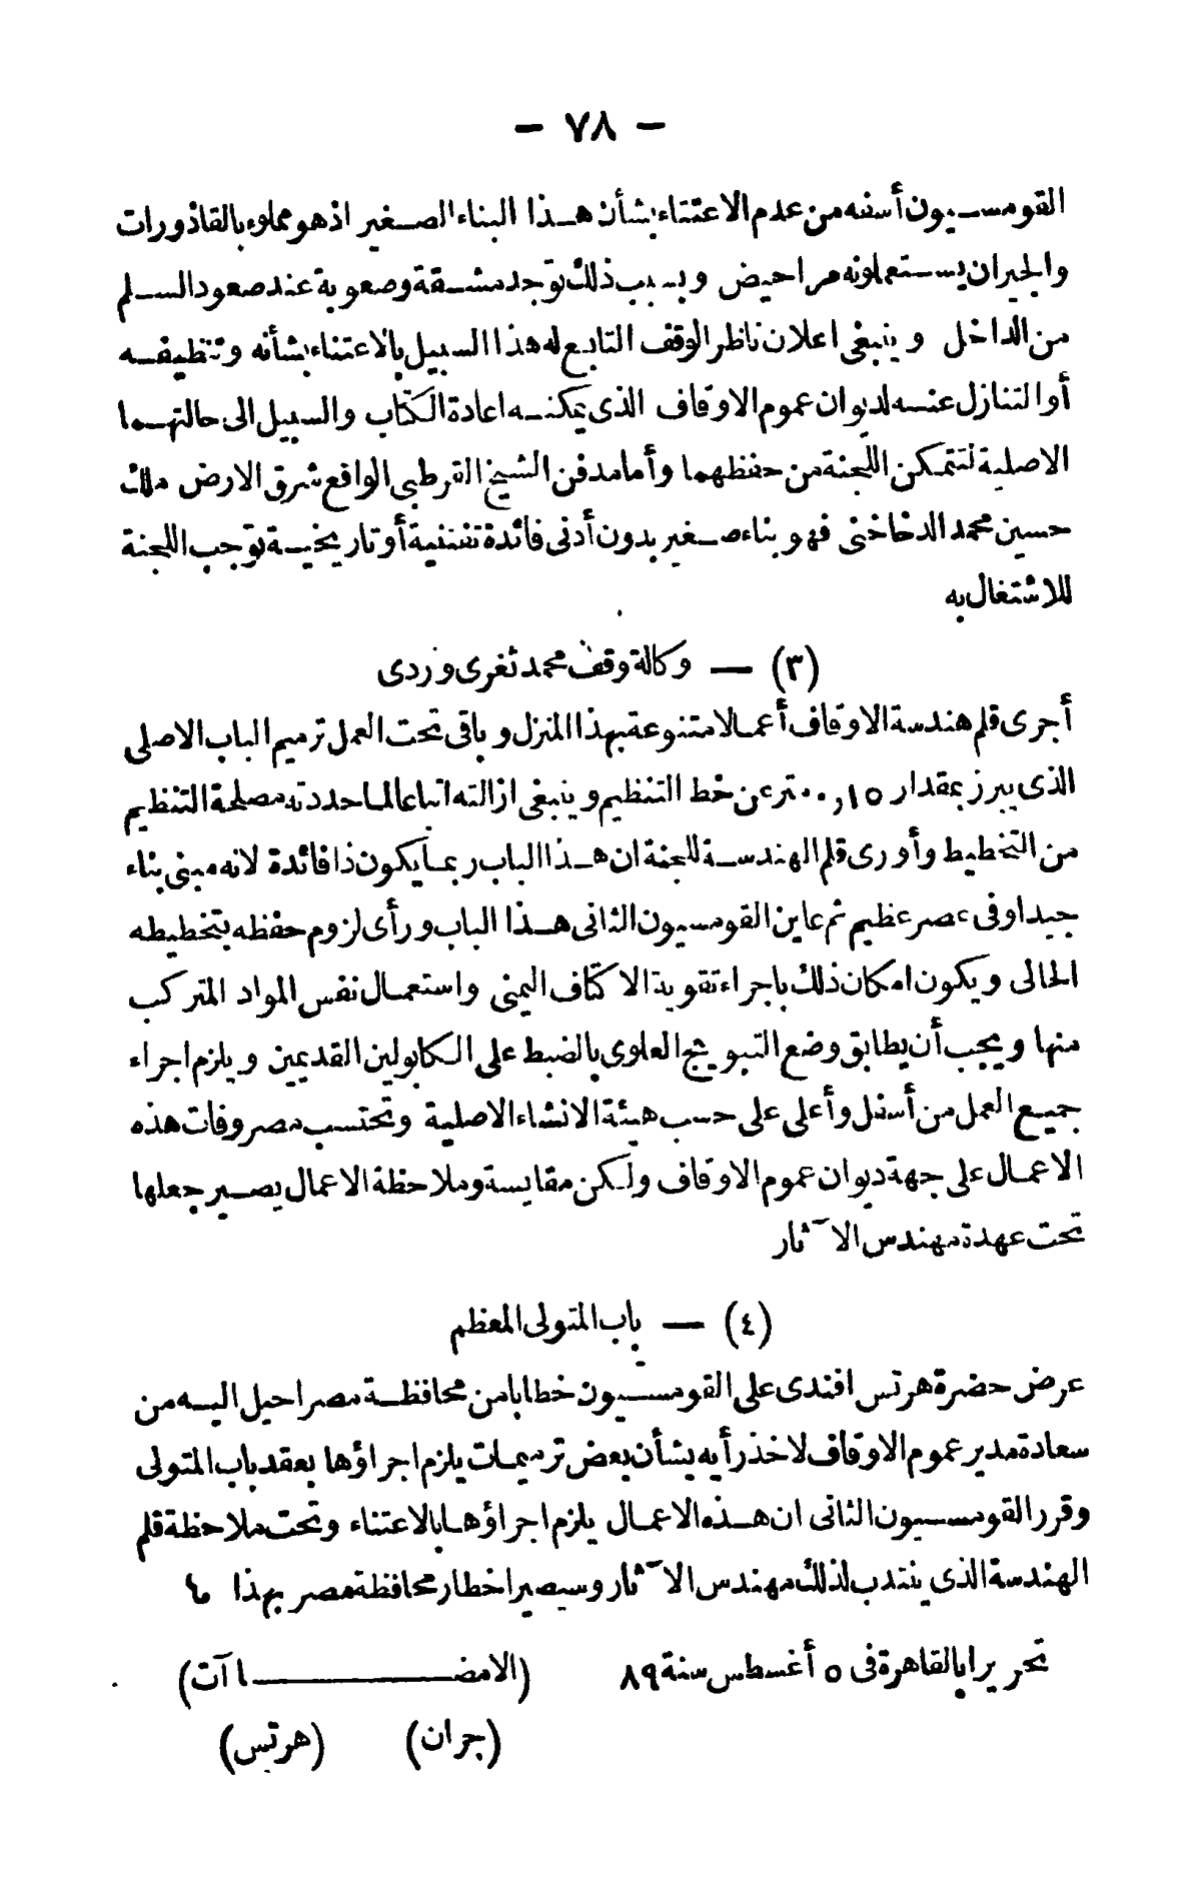 — ٧٨ —
القومسيون أسفه من عدم الاعتناء بشأن هذا البناء الصغير اذ هو مملوء بالقاذورات
والجيران يستعملونه مراحيض وبسبب ذلك توجد مشقة وصعوبة عند صعود السلم
من الداخل وينبغى اعلان ناظر الوقف التابع له هذا السبيل بالاعتناء بشأنه وتنظيفه
أو التنازل عنه لديوان عموم الاوقاف الذى يمكنه اعادة الكتاب والسبيل الى حالتهما
الاصلية لتتمكن اللجنة من حفظهما وأما مدفن الشيخ القرطبى الواقع شرق الارض ملك
حسين محمد الدخاخنى فهو بناء صغير بدون أدنى فائدة تفننية أو تاريخية توجب اللجنة
للاشتغال به
(٣) — وكالة وقف محمد ثغرى وردى
أجرى قلم هندسة الاوقاف أعمالا متنوعة بهذا المنزل وباقى تحت العمل ترميم الباب الاصلى
الذى يبرز بمقدار ٠٠,١٥ متر عن خط التنظيم وينبغى ازالته اتباعا لما حددته مصلحة التنظيم
من التخطيط وأورى قلم الهندسة للجنة ان هذا الباب ربما يكون ذا فائدة لانه مبنى بناء
جيدا وفى عصر عظيم ثم عاين القومسيون الثانى هذا الباب ورأى لزوم حفظه بتخطيطه
الحالى ويكون امكان ذلك باجراء تقوية الاكتاف اليمنى واستعمال نفس المواد المتركب
منها ويجب أن يطابق وضع التبويج العلوى بالضبط على الكابولين القديمين ويلزم اجراء
جميع العمل من أسفل وأعلى على حسب هيئة الانشاء الاصلية وتحتسب مصروفات هذه
الاعمال على جهة ديوان عموم الاوقاف ولكن مقايسة وملاحظة الاعمال يصير جعلها
تحت عهدة مهندس الآثار
(٤) — باب المتولى المعظم
عرض حضرة هرتس افندى على القومسيون خطابا من محافظة مصر احيل اليه من
سعادة مدير عموم الاوقاف لاخذ رأيه بشأن بعض ترميمات يلزم اجراؤها بعقد باب المتولى
وقرر القومسيون الثانى ان هذه الاعمال يلزم اجراؤها بالاعتناء وتحت ملاحظة قلم
الهندسة الذى ينتدب لذلك مهندس الآثار وسيصير اخطار محافظة مصر بهذا م
تحريرا بالقاهرة فى ٥ أغسطس سنة ٨٩ (الامضاآت)
(جران) (هرتس)